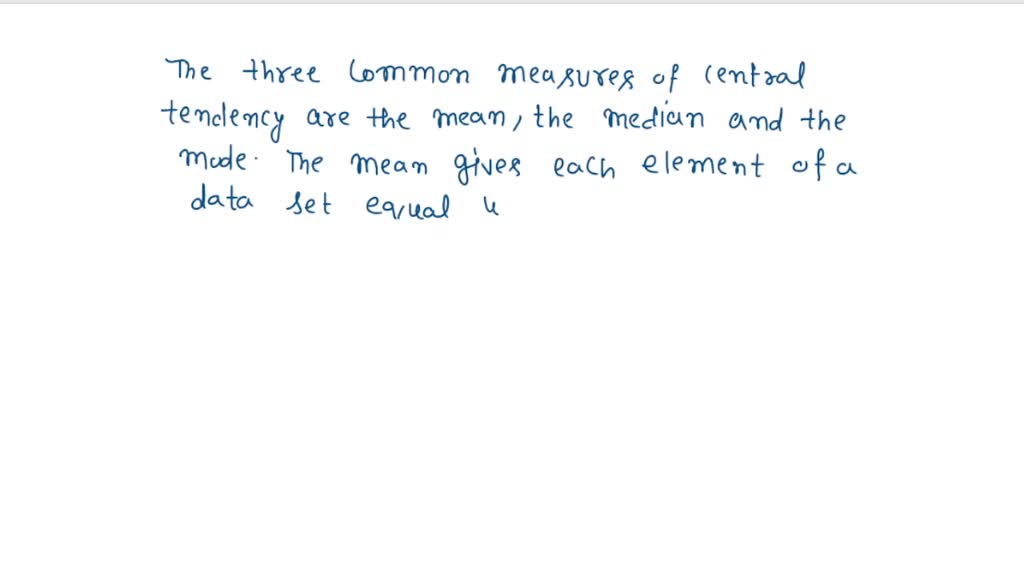 The three common measures of central
tendency are the mean, the median and the
mode. The mean gives each element of a
data set equal